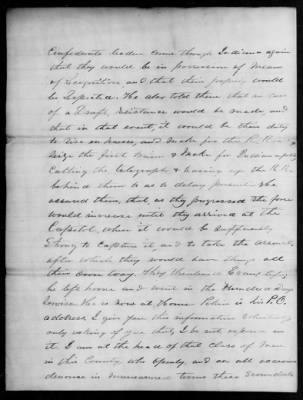 Confederate leader come through Indiana again
that they would be in possession of means
of Recognition and that their property would
be Respected. He also told them that in case
of a Draft, Resistance would be made, and
that in that event, it would be their duty
to Rise in masses, and make for the R. Road
Seize the first train & make for Indianapolis
Cutting the telegraph & tearing up the R.R.
behind them so as to delay pursuit & he
assured them, that, as they progressed the force
would increase until they arrived at the
Capitol, when it would be sufficiently
Strong to Capture it and to take the arsenal
after which they would have things all
their own way. They threatened Evans life,
he left home and went in the Hundred Days
Service. He is now at Home is his P.O.
address. I give you this information
only asking of you that I be not exposed in
it. I am at the head of that class of men
in this County who openly and on all occasions
denounce in unmeasured terms these Scoundrels